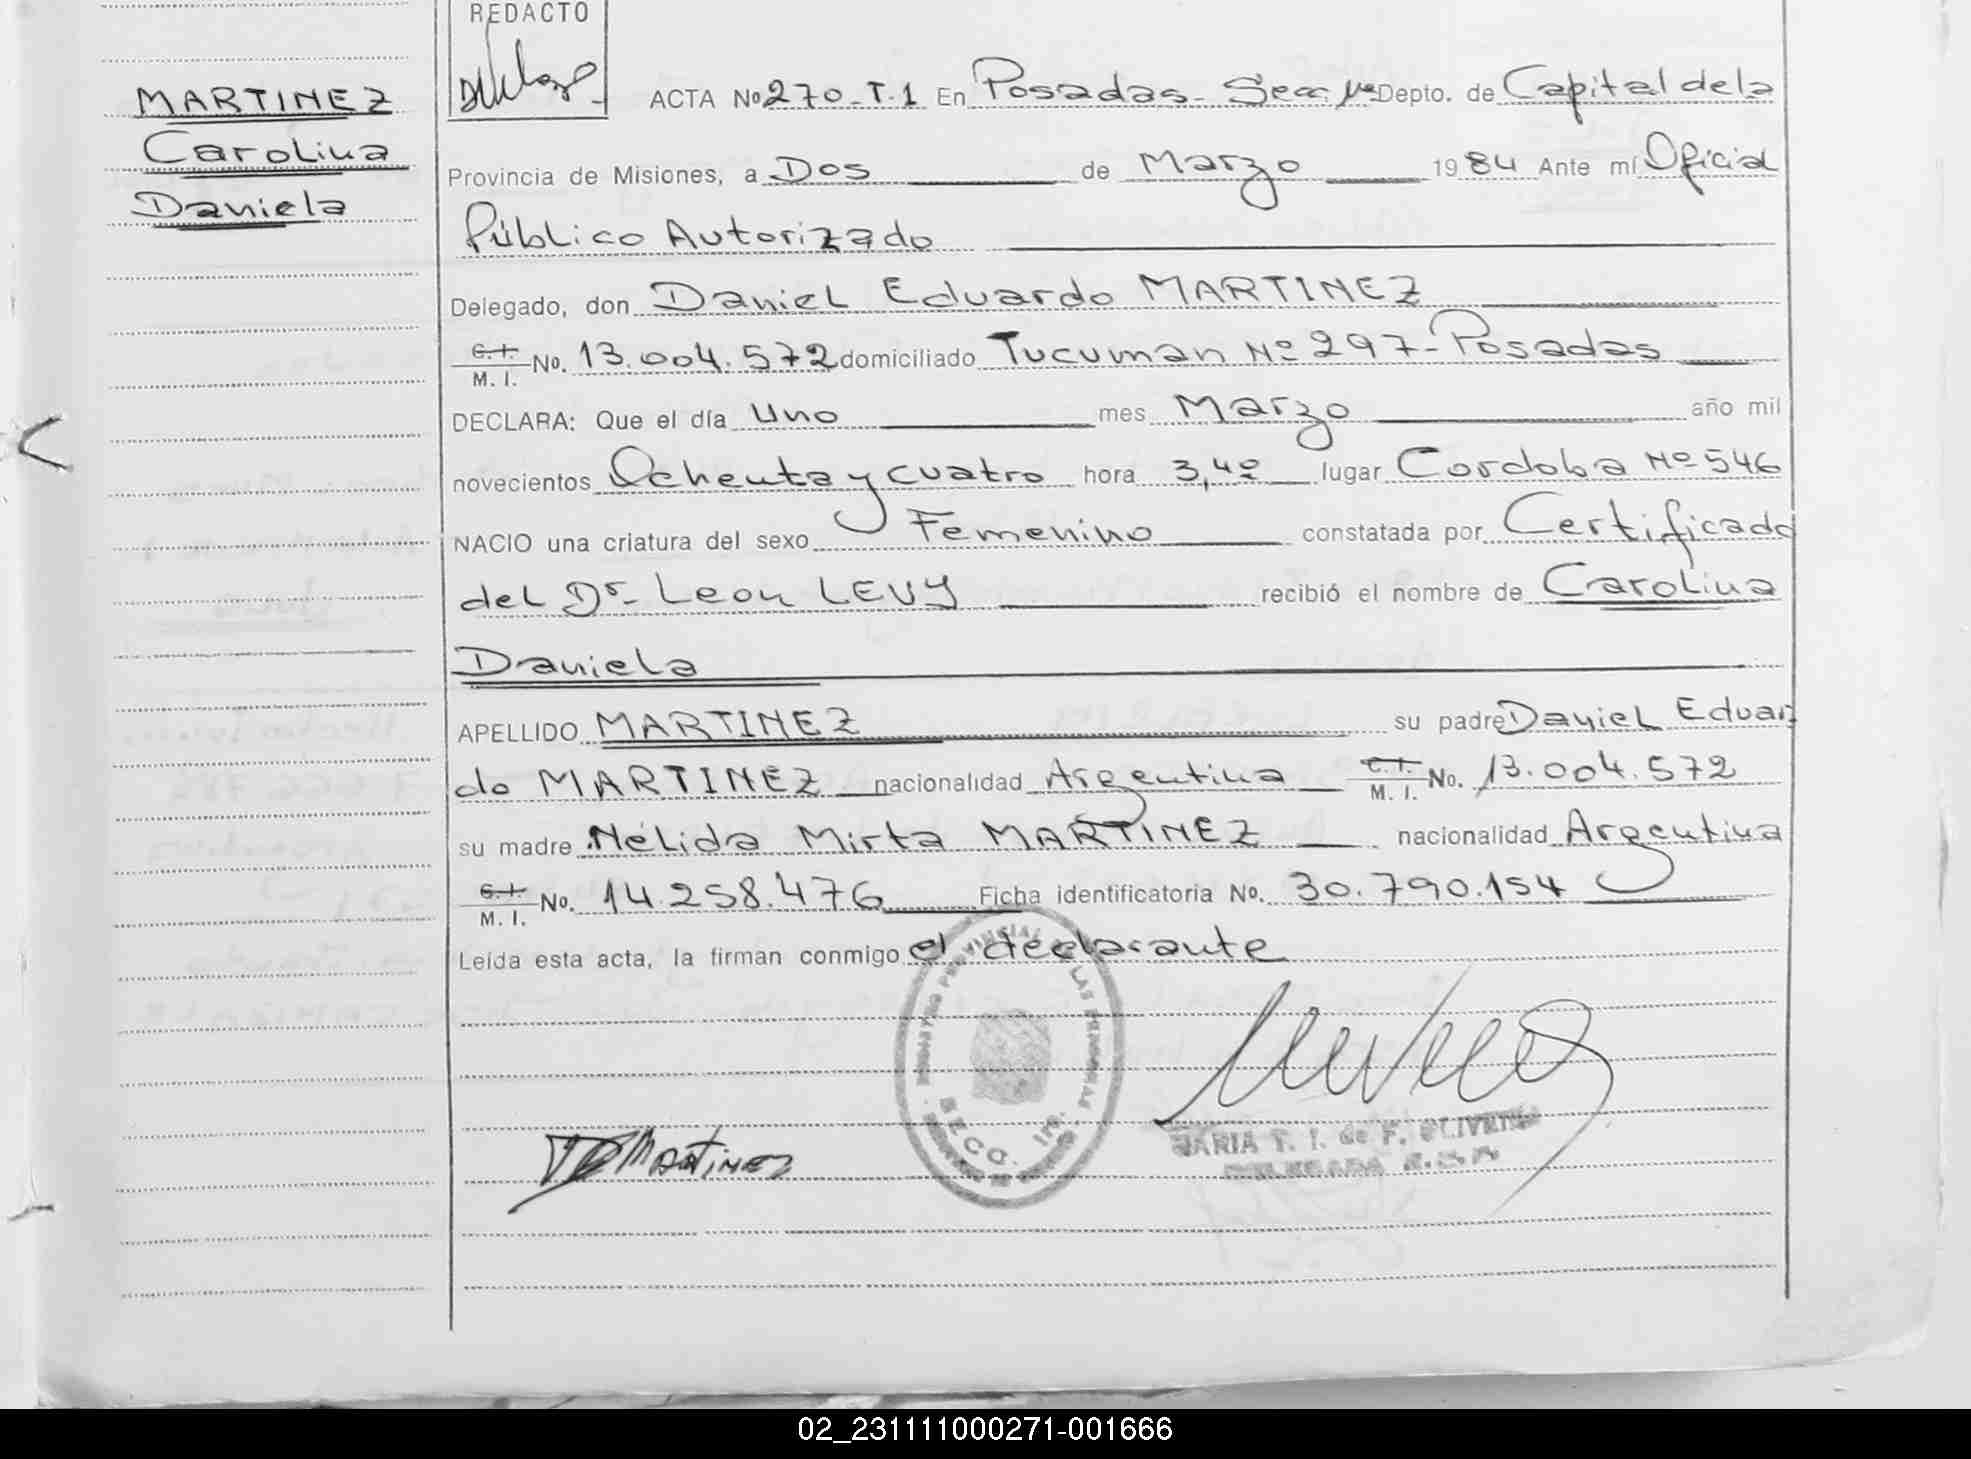 REDACTO
MARTINEZ
Carolina
Daniela
ACTA No 270-T.1 En Posadas - Secc. 1ra Depto. de Capital de la
Provincia de Misiones, a Dos de Marzo 1984 Ante mí Oficial
Público Autorizado
Delegado, don Daniel Eduardo MARTINEZ
C.I. / M. I. No. 13.004.572 domiciliado Tucuman Nº 297- Posadas
DECLARA: Que el día Uno mes Marzo año mil
novecientos Ochenta y cuatro hora 3,40 lugar Cordoba Nº 546
NACIO una criatura del sexo Femenino constatada por Certificado
del Dr. Leon LEVY recibió el nombre de Carolina
Daniela
APELLIDO MARTINEZ su padre Daniel Eduar
do MARTINEZ nacionalidad Argentina C.I. / M. I. No. 13.004.572
su madre Nélida Mirta MARTINEZ nacionalidad Argentina
C.I. / M. I. No. 14.258.476 Ficha identificatoria No. 30.790.154
Leída esta acta, la firman conmigo el declarante
REGISTRO PROVINCIAL DE LAS PERSONAS
SECC. 1ra.
MARIA T. I. de F. OLIVEIRA
DELEGADA
Martinez
02_231111000271-001666